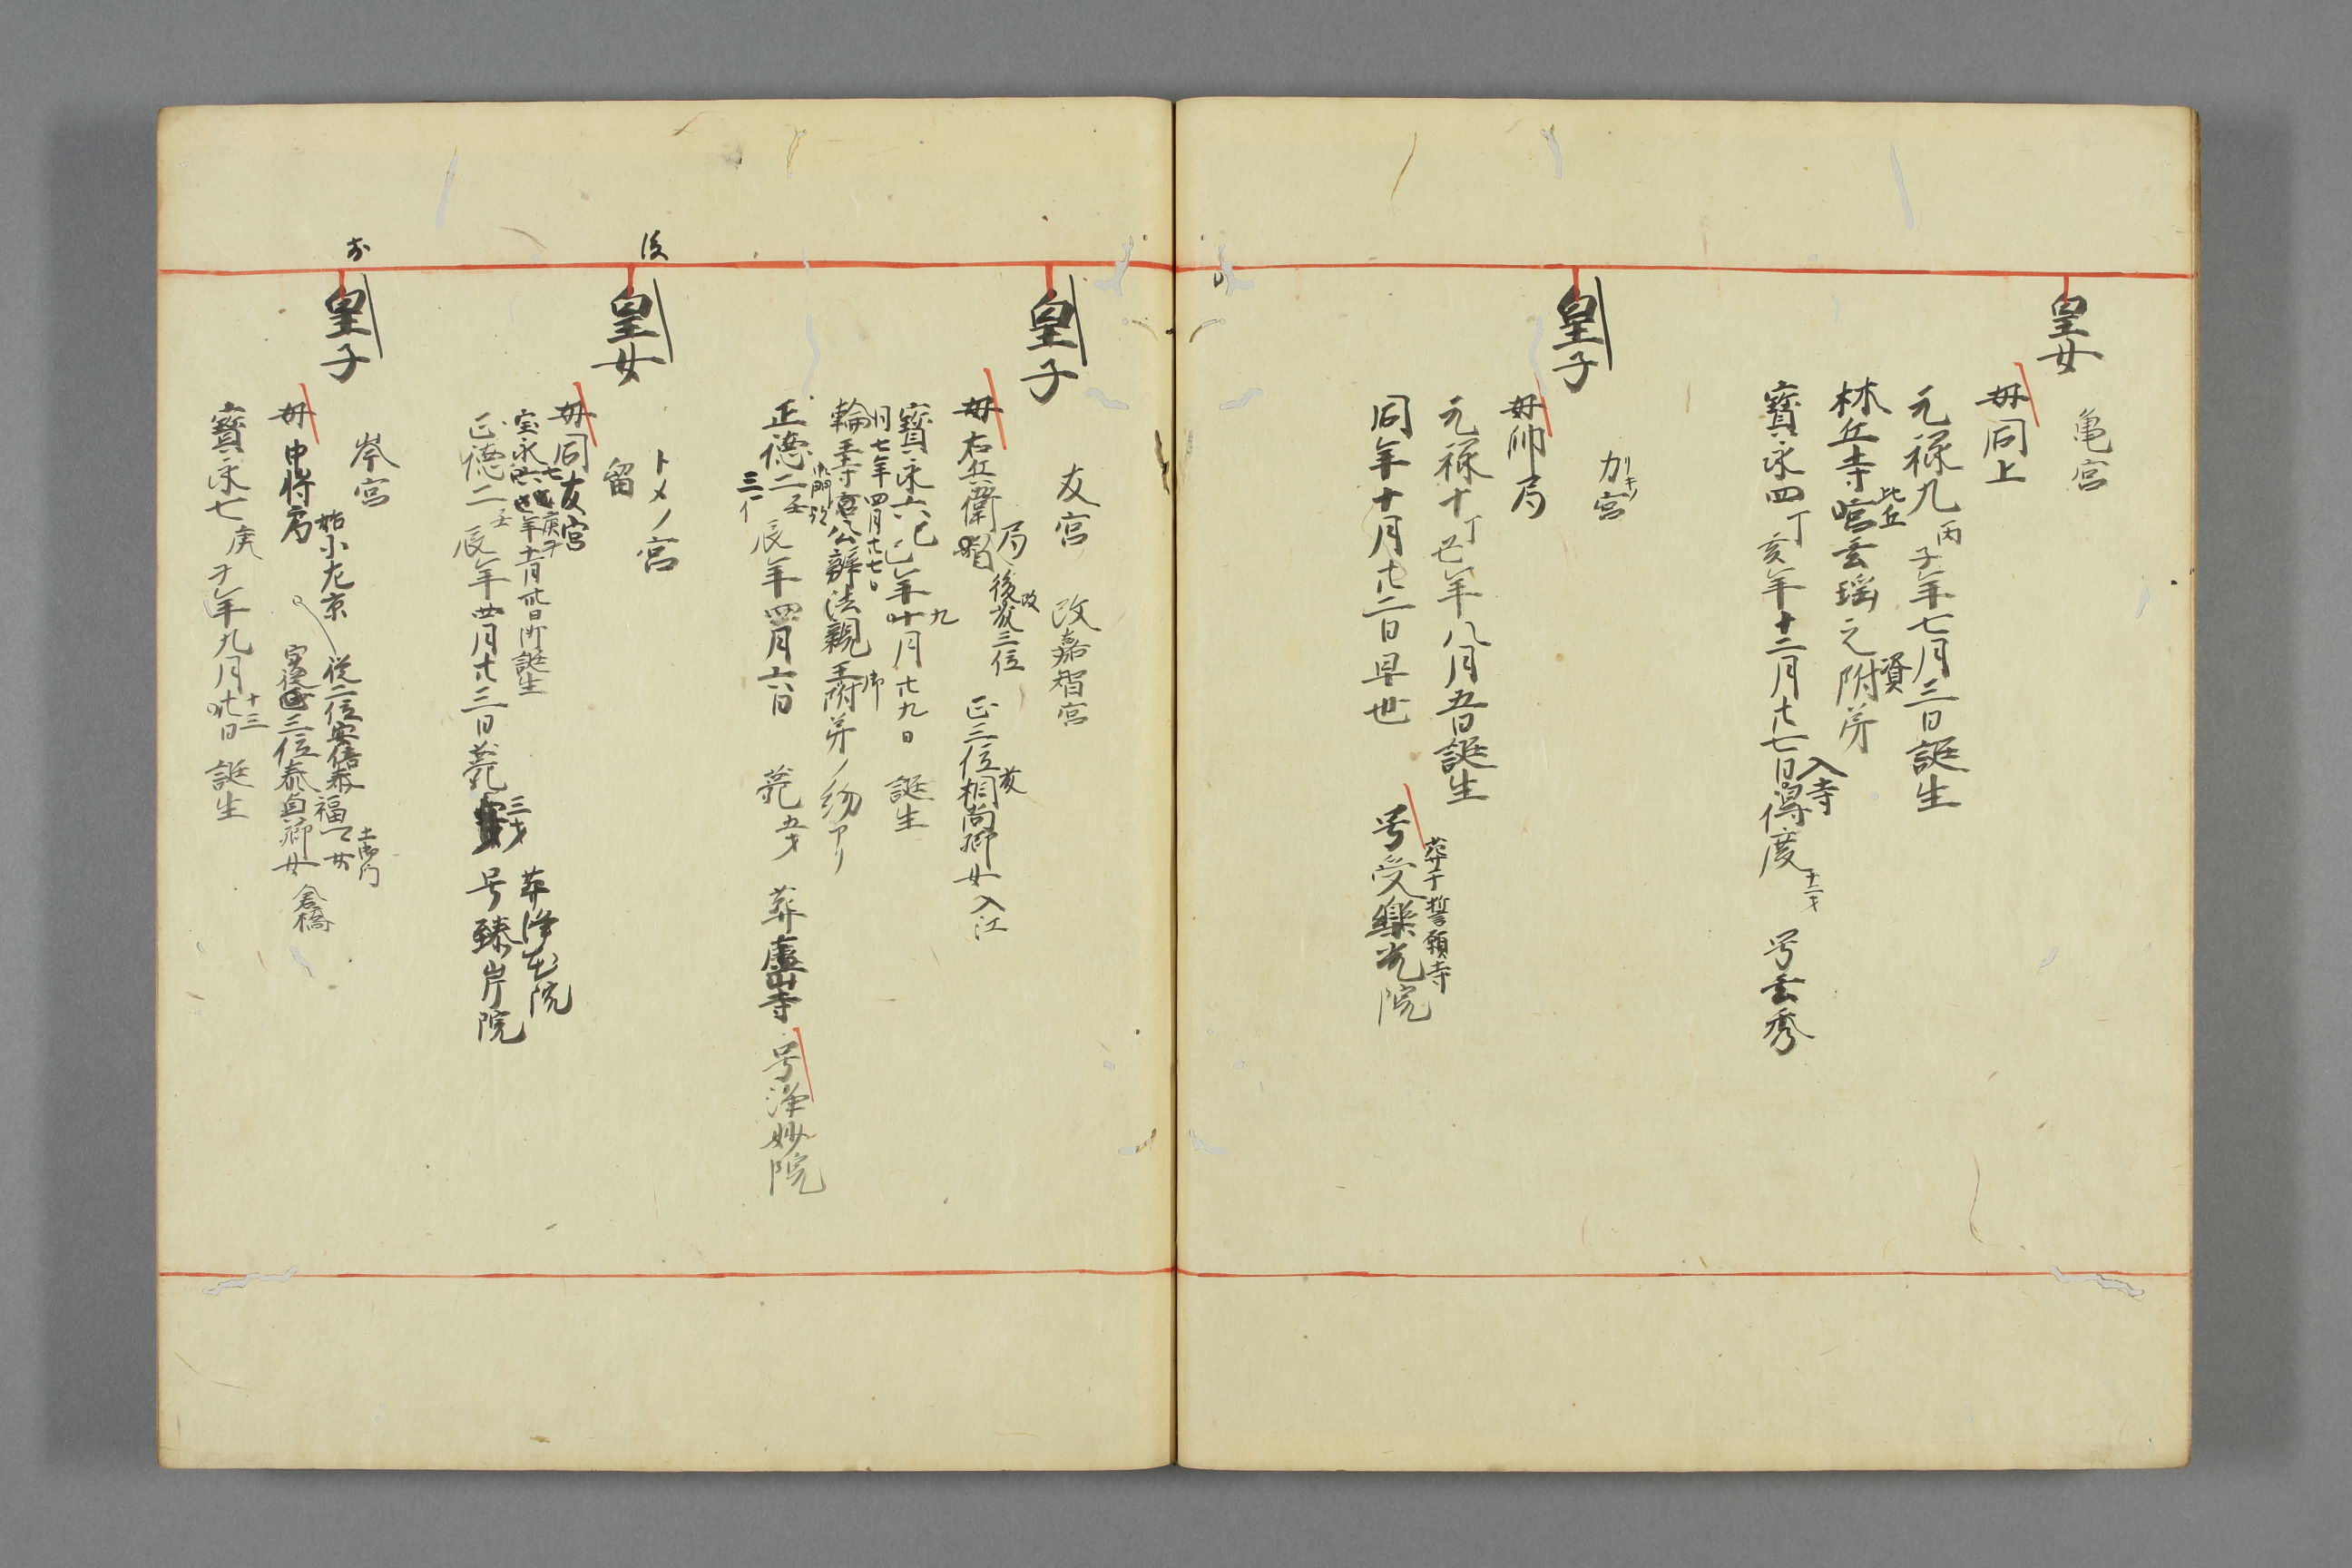 皇女
亀宮
母同上
元禄九丙子年七月三日誕生
林丘寺宮玄瑶之附弟
比丘
資
入寺
寶永四丁亥年十二月廿七日得度十二才 号玄秀
皇子
力宮
リキノ
母帥局
元禄十丁丑年八月五日誕生
同年十月廿二日早世
葬于誓願寺
号受樂光院
皇子
友宮 改嘉智宮
母右兵衛局
改
後三位
正三位相尚卿女入江
寶永六己丑年九月廿九日 誕生
同七年四月廿七日
輪王寺宮公辨法親王附弟ノ約アリ
正徳二壬辰年四月六日 薨五才 葬廬山寺 号浄妙院
後
皇女
トメノ宮
留
母同友宮
宝永七庚子
年十一月廿日誕生
正徳二壬辰年四月廿三日薨三才
葬浄花院
号臻岸院
皇子
岑宮
母中将局
始小左京
従二位安倍泰福女
土御門
三位泰貞卿女
倉橋
寶永七庚子年九月十三日誕生